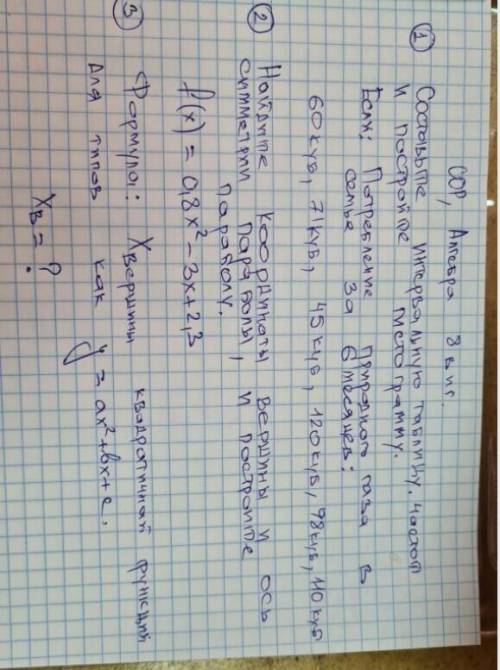 СОР, Алгебра 8 в иг.
① Составьте интервальную таблицу частот
и постройте гистограмму.
Если: Потребление природного газа в
семье за 6 месяцев:
60 куб, 71 куб, 45 куб, 120 куб, 98 куб, 110 куб
② Найдите координаты вершины и ось
симметрии параболы, и постройте
параболу.
f(x) = 0,8x² - 3x + 2,3
③ Формула: Xвершины квадратичной функций
для типов как y = ax² + bx + c.
Xв = ?